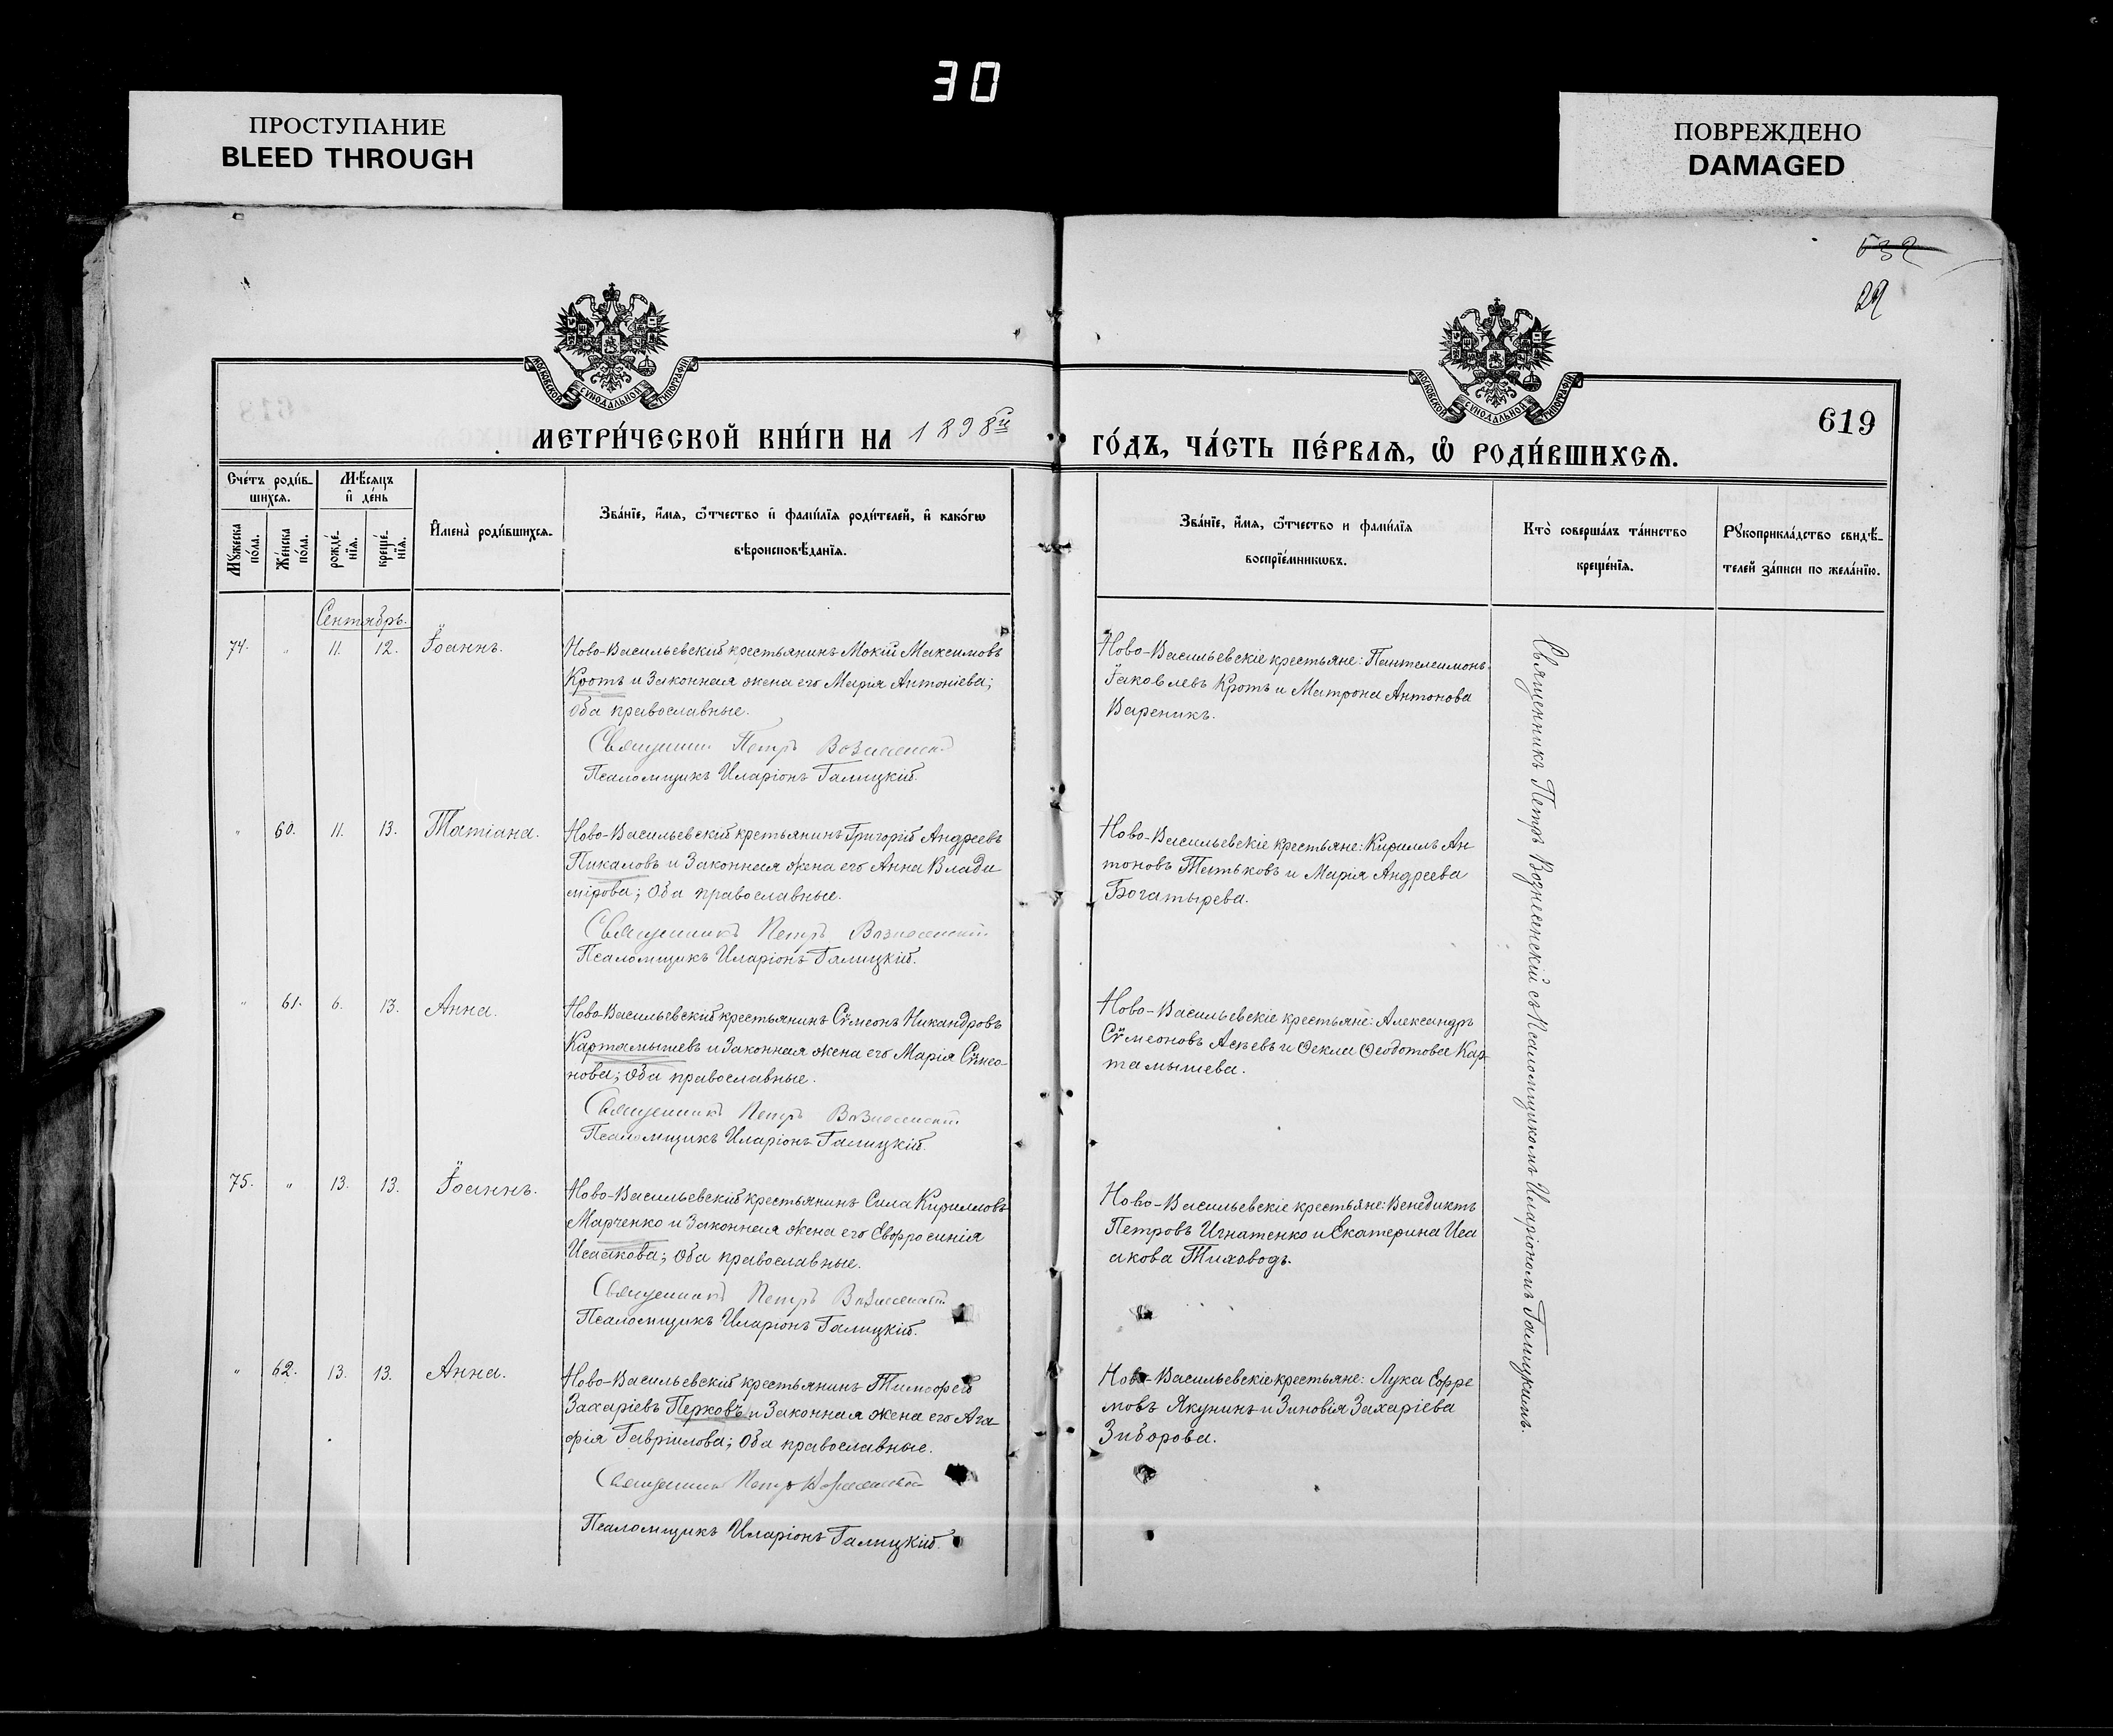 30
ПРОСТУПАНИЕ
BLEED THROUGH
ПОВРЕЖДЕНО
DAMAGED
532
29
МОСКОВСКОЙ СѴНОДАЛЬНОЙ ТИПОГРАФІИ
МОСКОВСКОЙ СѴНОДАЛЬНОЙ ТИПОГРАФІИ
619
МЕТРИ́ЧЕСКОЙ КНИ́ГИ НА 1898й
ГО́ДЪ, ЧА́СТЬ ПЕ́РВАѦ, Ѽ РОДИ́ВШИХСѦ.
Сче́тъ роди́в-
шихсѧ.
Мѣ́сѧцъ
и҆ де́нь
Мꙋ́жеска по́ла.
Же́нска по́ла.
рожде́-
нїѧ.
креще́-
нїѧ.
И҆мена̀ роди́вшихсѧ.
Зва́нїе, и҆́мѧ, ѻ҆́тчество и҆ фами́лїѧ роди́телей, и҆ како́гѡ
вѣроисповѣ́данїѧ.
Зва́нїе, и҆́мѧ, ѻ҆́тчество и фами́лїѧ
воспрїе́мникѡвъ.
Кто̀ соверша́лъ та́инство
креще́нїѧ.
Рꙋкоприкла́дство свидѣ́-
телей за́писи по жела́нїю.
Сентябрь.
74. " 11. 12. Іоаннъ.
Ново-Васильевскій крестьянинъ Мокій Максимовъ
Кротъ и законная жена его Марія Антоніева;
оба православные.
Священникъ Петръ Вознесенскій
Псаломщикъ Иларіонъ Галицкій.
Ново-Васильевскіе крестьяне: Пантелеимонъ
Іаковлевъ Кротъ и Матрона Антонова
Вареникъ.
" 60. 11. 13. Татіана.
Ново-Васильевскій крестьянинъ Григорій Андреевъ
Пикаловъ и законная жена его Анна Влади
мірова; оба православные.
Священникъ Петръ Вознесенскій
Псаломщикъ Иларіонъ Галицкій.
Ново-Васильевскіе крестьяне: Кириллъ Ан
тоновъ Титьковъ и Марія Андреева
Богатырева.
" 61. 6. 13. Анна.
Ново-Васильевскій крестьянинъ Сѵмеонъ Никандровъ
Картамышевъ и законная жена его Марія Сѵмео-
нова; оба православные.
Священникъ Петръ Вознесенскій
Псаломщикъ Иларіонъ Галицкій.
Ново-Васильевскіе крестьяне: Александръ
Сѵмеоновъ Асѣевъ и Ѳекла Ѳеодотова Кар
тамышева.
75. " 13. 13. Іоаннъ.
Ново-Васильевскій крестьянинъ Сила Кирилловъ
Марченко и законная жена его Евфросинія
Исаакова; оба православные.
Священникъ Петръ Вознесенскій
Псаломщикъ Иларіонъ Галицкій.
Ново-Васильевскіе крестьяне: Венедиктъ
Петровъ Игнатенко и Екатерина Иса
акова Тиховодъ.
" 62. 13. 13. Анна.
Ново-Васильевскій крестьянинъ Тимофей
Захаріевъ Перковъ и законная жена его Ага
фія Гавріилова; оба православные.
Священникъ Петръ Вознесенскій
Псаломщикъ Иларіонъ Галицкій.
Ново-Васильевскіе крестьяне: Лука Ефре
мовъ Якунинъ и Зиновія Захаріева
Зиборова.
Священникъ Петръ Вознесенскій съ Псаломщикомъ Иларіономъ Галицкимъ.